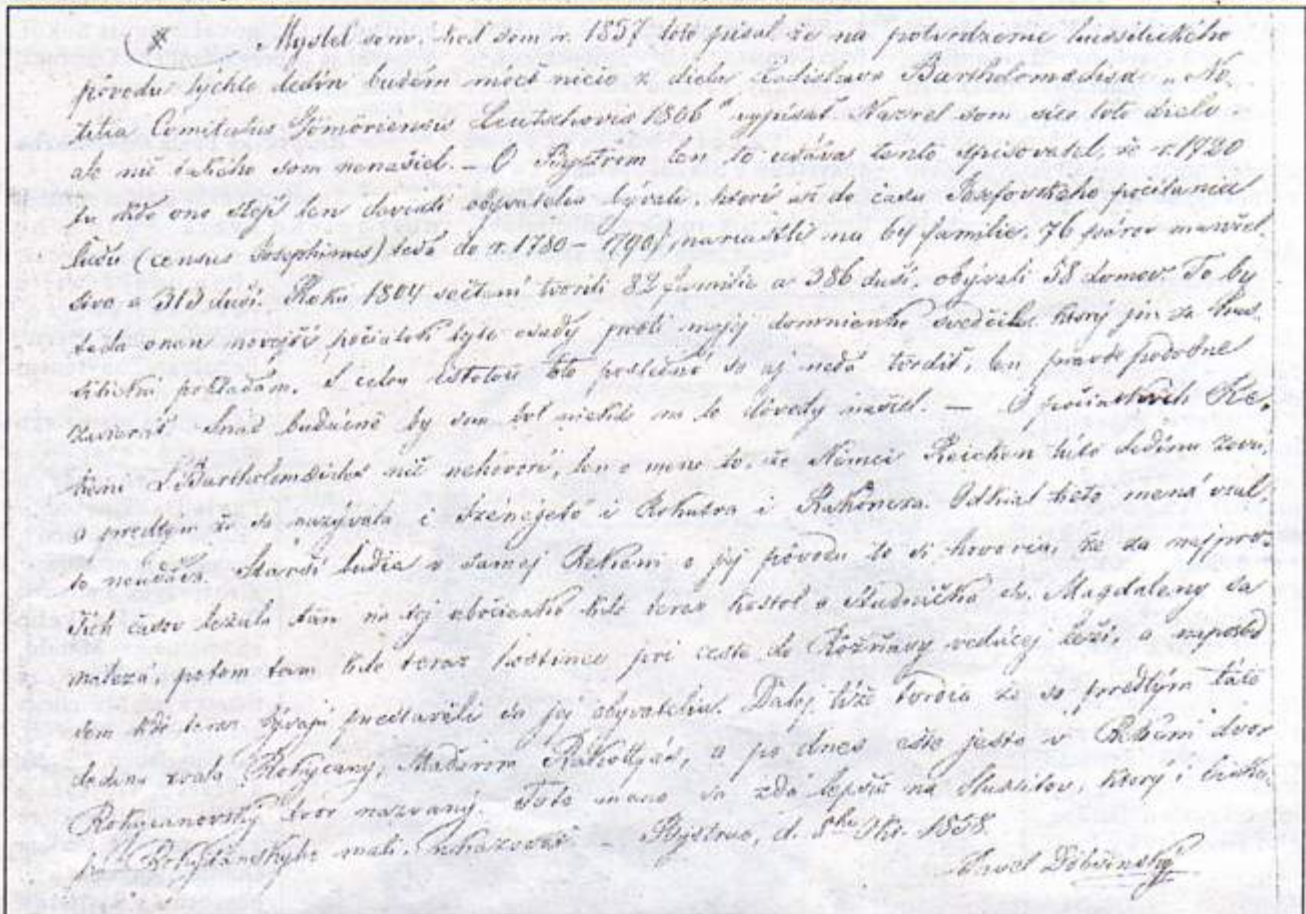 Myslel som, keď som r. 1857 toto písal že na potvrdzenie hussitického
pôvodu týchto dedín budem môcť niečo z diela Ladislava Bartholomaeidesa „No-
titia Comitatus Gömöriensis Leutschoviae 1806“ vypísať. Nazrel som síce toto dielo
ale nič takého som nenašiel. – O Bystrom len to udáva tento spisovatel, že r. 1720
tu kde ono stojí len dnviati obyvatelia bývali, ktorí až do času Jozefovského počítania
ľudu (census Josephinus) teda do r. 1780 – 1790, narástli na familie, 76 párov manžel-
stva a 313 duší. Roku 1804 sečítaní tvorili 82 familie a 386 duší, obývali 58 domov. To by
teda onen novejší počiatok tejto osady proti mojej domnienke svedčilo, ktorý jin za Hus-
sitický pokladám. S celou istotou toto posledné sa aj nedá tvrdiť, len pravde podobne
zavierať. Snáď budúcne by som bol niekde na to dôvody našiel. — O počiatkoch Re-
keni Bartholomaeides nič nehovorí, len o mene to, že Nemci Reichen túto dedinu zovú,
a predtým že sa nazývala i Szénégető i Rokutra i Rakoncza. Odkiaľ tieto mená vzal,
to neudáva. Starší ludia v samej Rekeni o jej pôvodu to si hovoria, že za najprv-
ších časov ležala tam na tej obočienke kde teraz kostol a Studnička sv. Magdaleny sa
nalezá, potom tam kde teraz hostinec pri ceste do Rožňavy vedúcej leží, a naposled
sem kde teraz bývajú prestavili sa jej obyvatelia. Ďalej tíže tvrdia že sa predtým táto
dedina zvala Rokycany, Maďarom Rakottyás, a po dnes ešte jesto v Rekeni dvor
Rokycanovský dvor nazvaný. Toto meno sa zdá lepšie na Hussitov, ktorý i
pri Rokycanskýho mali, ukazovať. – Bystruo, d. 8ho Okt. 1858.
Pavel Dobšinský